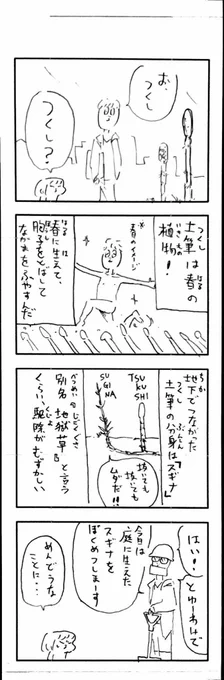 お、
つくし
つくし？
土筆は春の
つくし
植物！
しょくぶつ
※
春のイメージ
春に生えて、
はる は
胞子をとばして
ほうし
なかまをふやすんだ
地下でつながった
ちか
土筆の分身は「スギナ」
つくし ぶんしん
TSUKUSHI
SUGINA
抜いても
抜いても
ムダだ!!
別名「地獄草」と言う
べつめい じごくぐさ
くらい、駆除がむずかしい
くじょ
はい！とゆーわけで
今日は
庭に生えた
スギナを
ぼくめつしまーす
めんどうな
ことに…